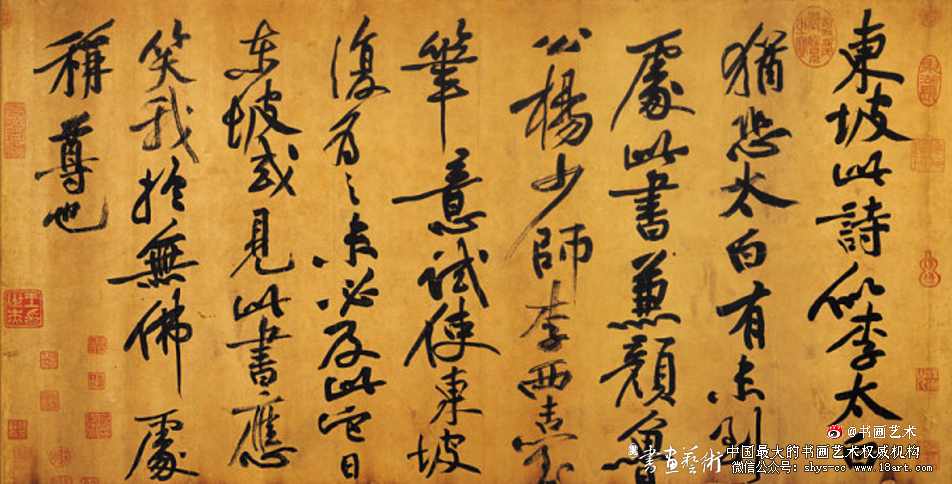 東坡此詩似李太白
猶恐太白有未到
處此書兼顏魯
公楊少師李西臺
筆意試使東坡
復為之未必及此它日
東坡或見此書應
笑我於無佛處
稱尊也
@书画艺术
書画藝術
中国最大的书画艺术权威机构
微信公众号: shys-cc www.18art.com